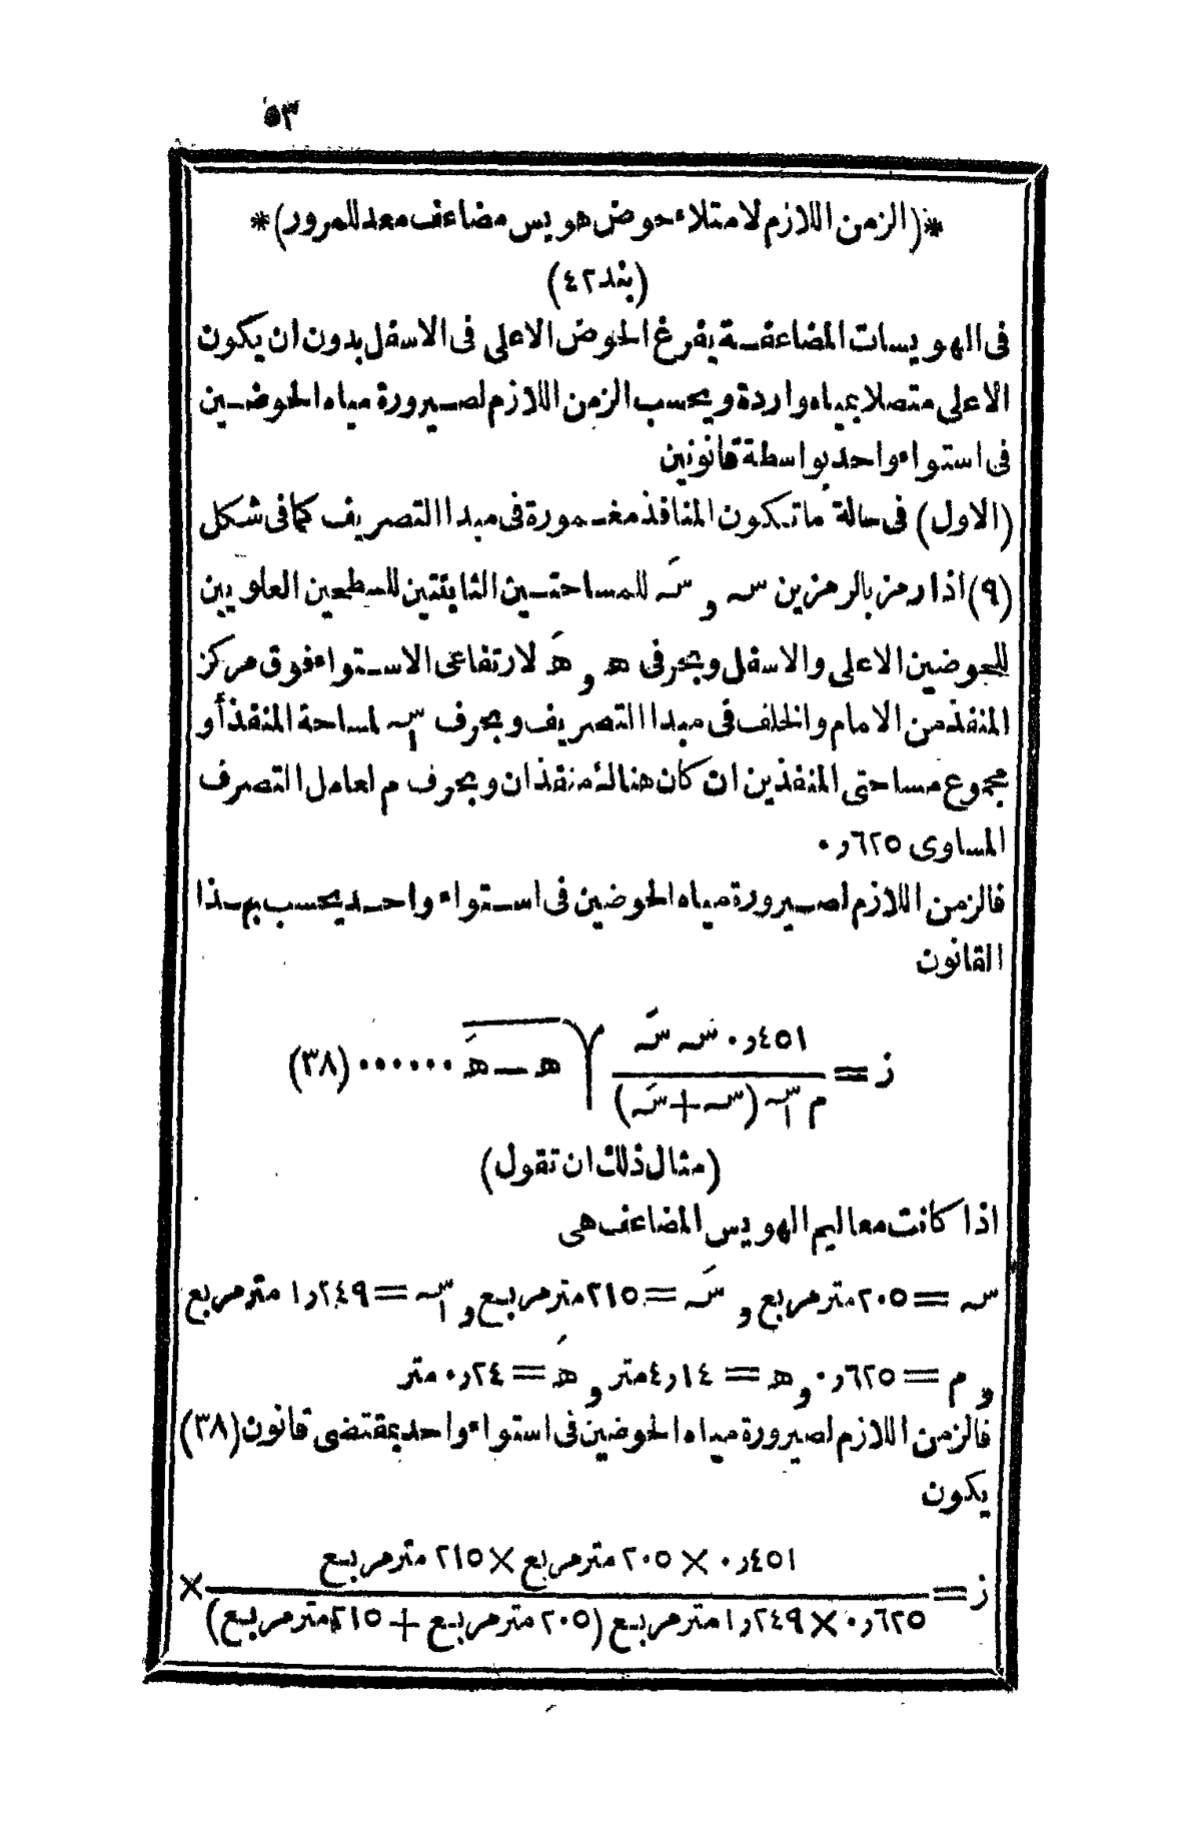 ٥٣
*(الزمن اللازم لامتلاء حوض هويس مضاعف معد للمرور)*
(بند ٤٢)
فى الهويسات المضاعفة يفرغ الحوض الاعلى فى الاسفل بدون ان يكون
الاعلى متصلا بمياه واردة ويحسب الزمن اللازم لصيرورة مياه الحوضين
فى استواء واحد بواسطة قانونين
(الاول) فى حالة ما تكون المنافذ مغمورة فى مبدا التصريف كما فى شكل
(٩) اذا رمز بالرمزين سـ و سَـ للمساحتين الثابتتين للسطحين العلويين
للحوضين الاعلى والاسفل وبحرفى هـ و هَـ لارتفاعى الاستواء فوق مركز
المنفذ من الامام والخلف فى مبدا التصريف وبحرف سـ١ لمساحة المنفذ أو
مجموع مساحتى المنفذين ان كان هناك منفذان وبحرف م لعامل التصرف
المساوى ٦٢٥ر٠
فالزمن اللازم لصيرورة مياه الحوضين فى استواء واحد يحسب بهذا
القانون
ز = ٤٥١ر٠ سـ سَـ / م سـ١ (سـ + سَـ) √ هـ — هَـ ٠٠٠٠٠٠ (٣٨)
(مثال ذلك ان تقول)
اذا كانت معاليم الهويس المضاعف هى
سـ = ٢٠٥ مترمربع و سَـ = ٢١٥ مترمربع و سـ١ = ٢٤٩ر١ مترمربع
و م = ٦٢٥ر٠ و هـ = ١٤ر٤ متر و هَـ = ٢٤ر٠ متر
فالزمن اللازم لصيرورة مياه الحوضين فى استواء واحد بمقتضى قانون (٣٨)
يكون
ز = ٤٥١ر٠ × ٢٠٥ مترمربع × ٢١٥ مترمربع / ٦٢٥ر٠ × ٢٤٩ر١ مترمربع (٢٠٥ مترمربع + ٢١٥ مترمربع) ×